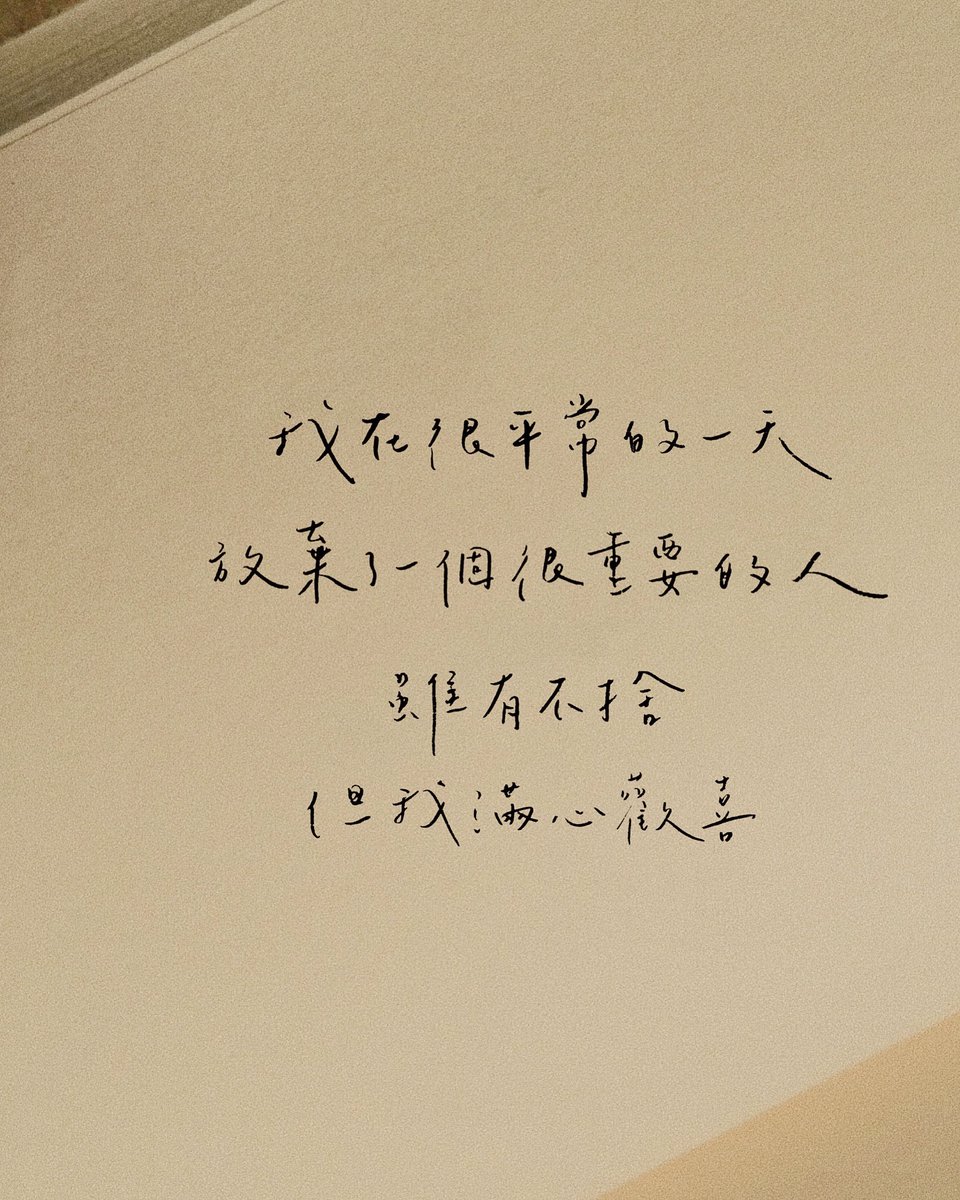 我在很平常的一天
放棄了一個很重要的人
雖有不捨
但我滿心歡喜